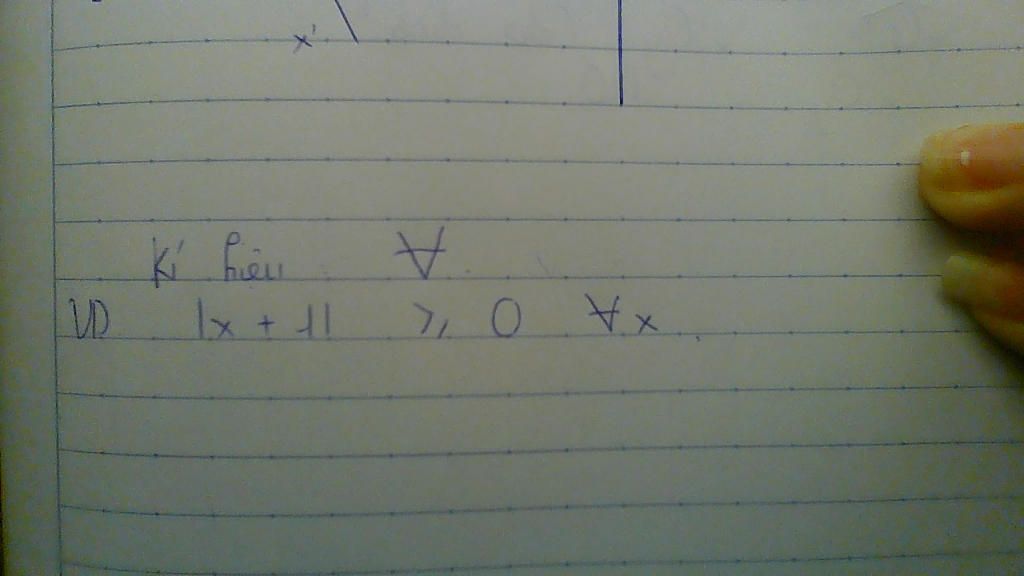 x'
Kí hiệu ∀
VD |x + 1| ≥ 0 ∀x